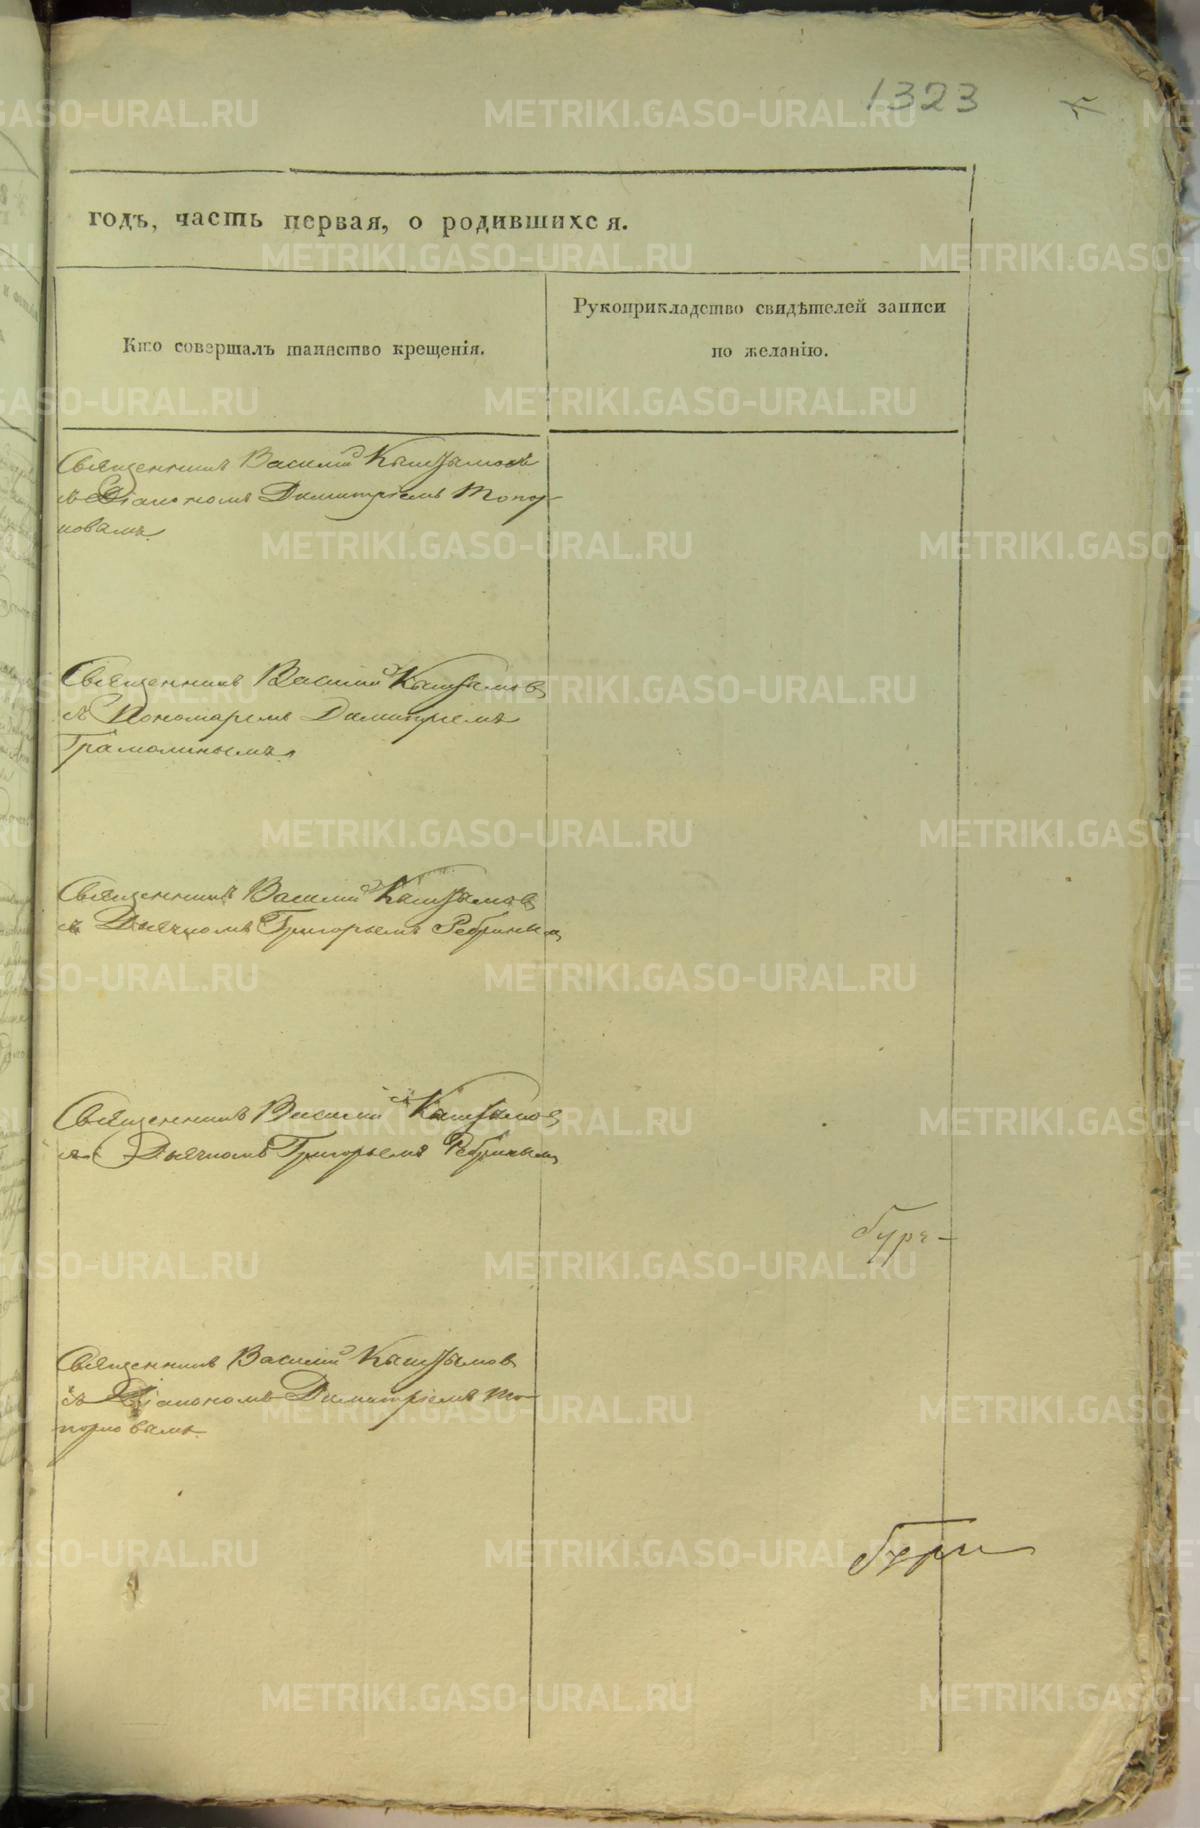 1323
годъ, часть первая, о родившихся.
Кто совершалъ таинство крещенія.
Рукоприкладство свидѣтелей записи
по желанію.
Священникъ Василій Кыштымовъ
съ Діакономъ Димитріемъ Топор-
новымъ.
Священникъ Василій Кыштымовъ
съ Пономаремъ Димитріемъ
Грамолинымъ.
Священникъ Василій Кыштымовъ
съ Дьячкомъ Григорьемъ Ребринымъ
Священникъ Василій Кыштымовъ
съ Дьячкомъ Григорьемъ Ребринымъ
Священникъ Василій Кыштымовъ
съ Діакономъ Димитріемъ То-
порновымъ.
METRIKI.GASO-URAL.RU